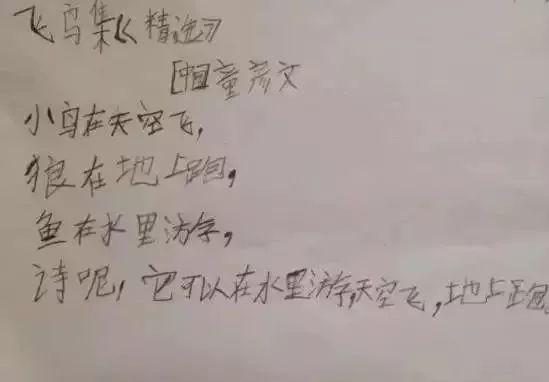 飞鸟集《精选》
[中国]童彦文
小鸟在天空飞,
狼在地上跑,
鱼在水里游,
诗呢,它可以在水里游,天空飞,地上跑。